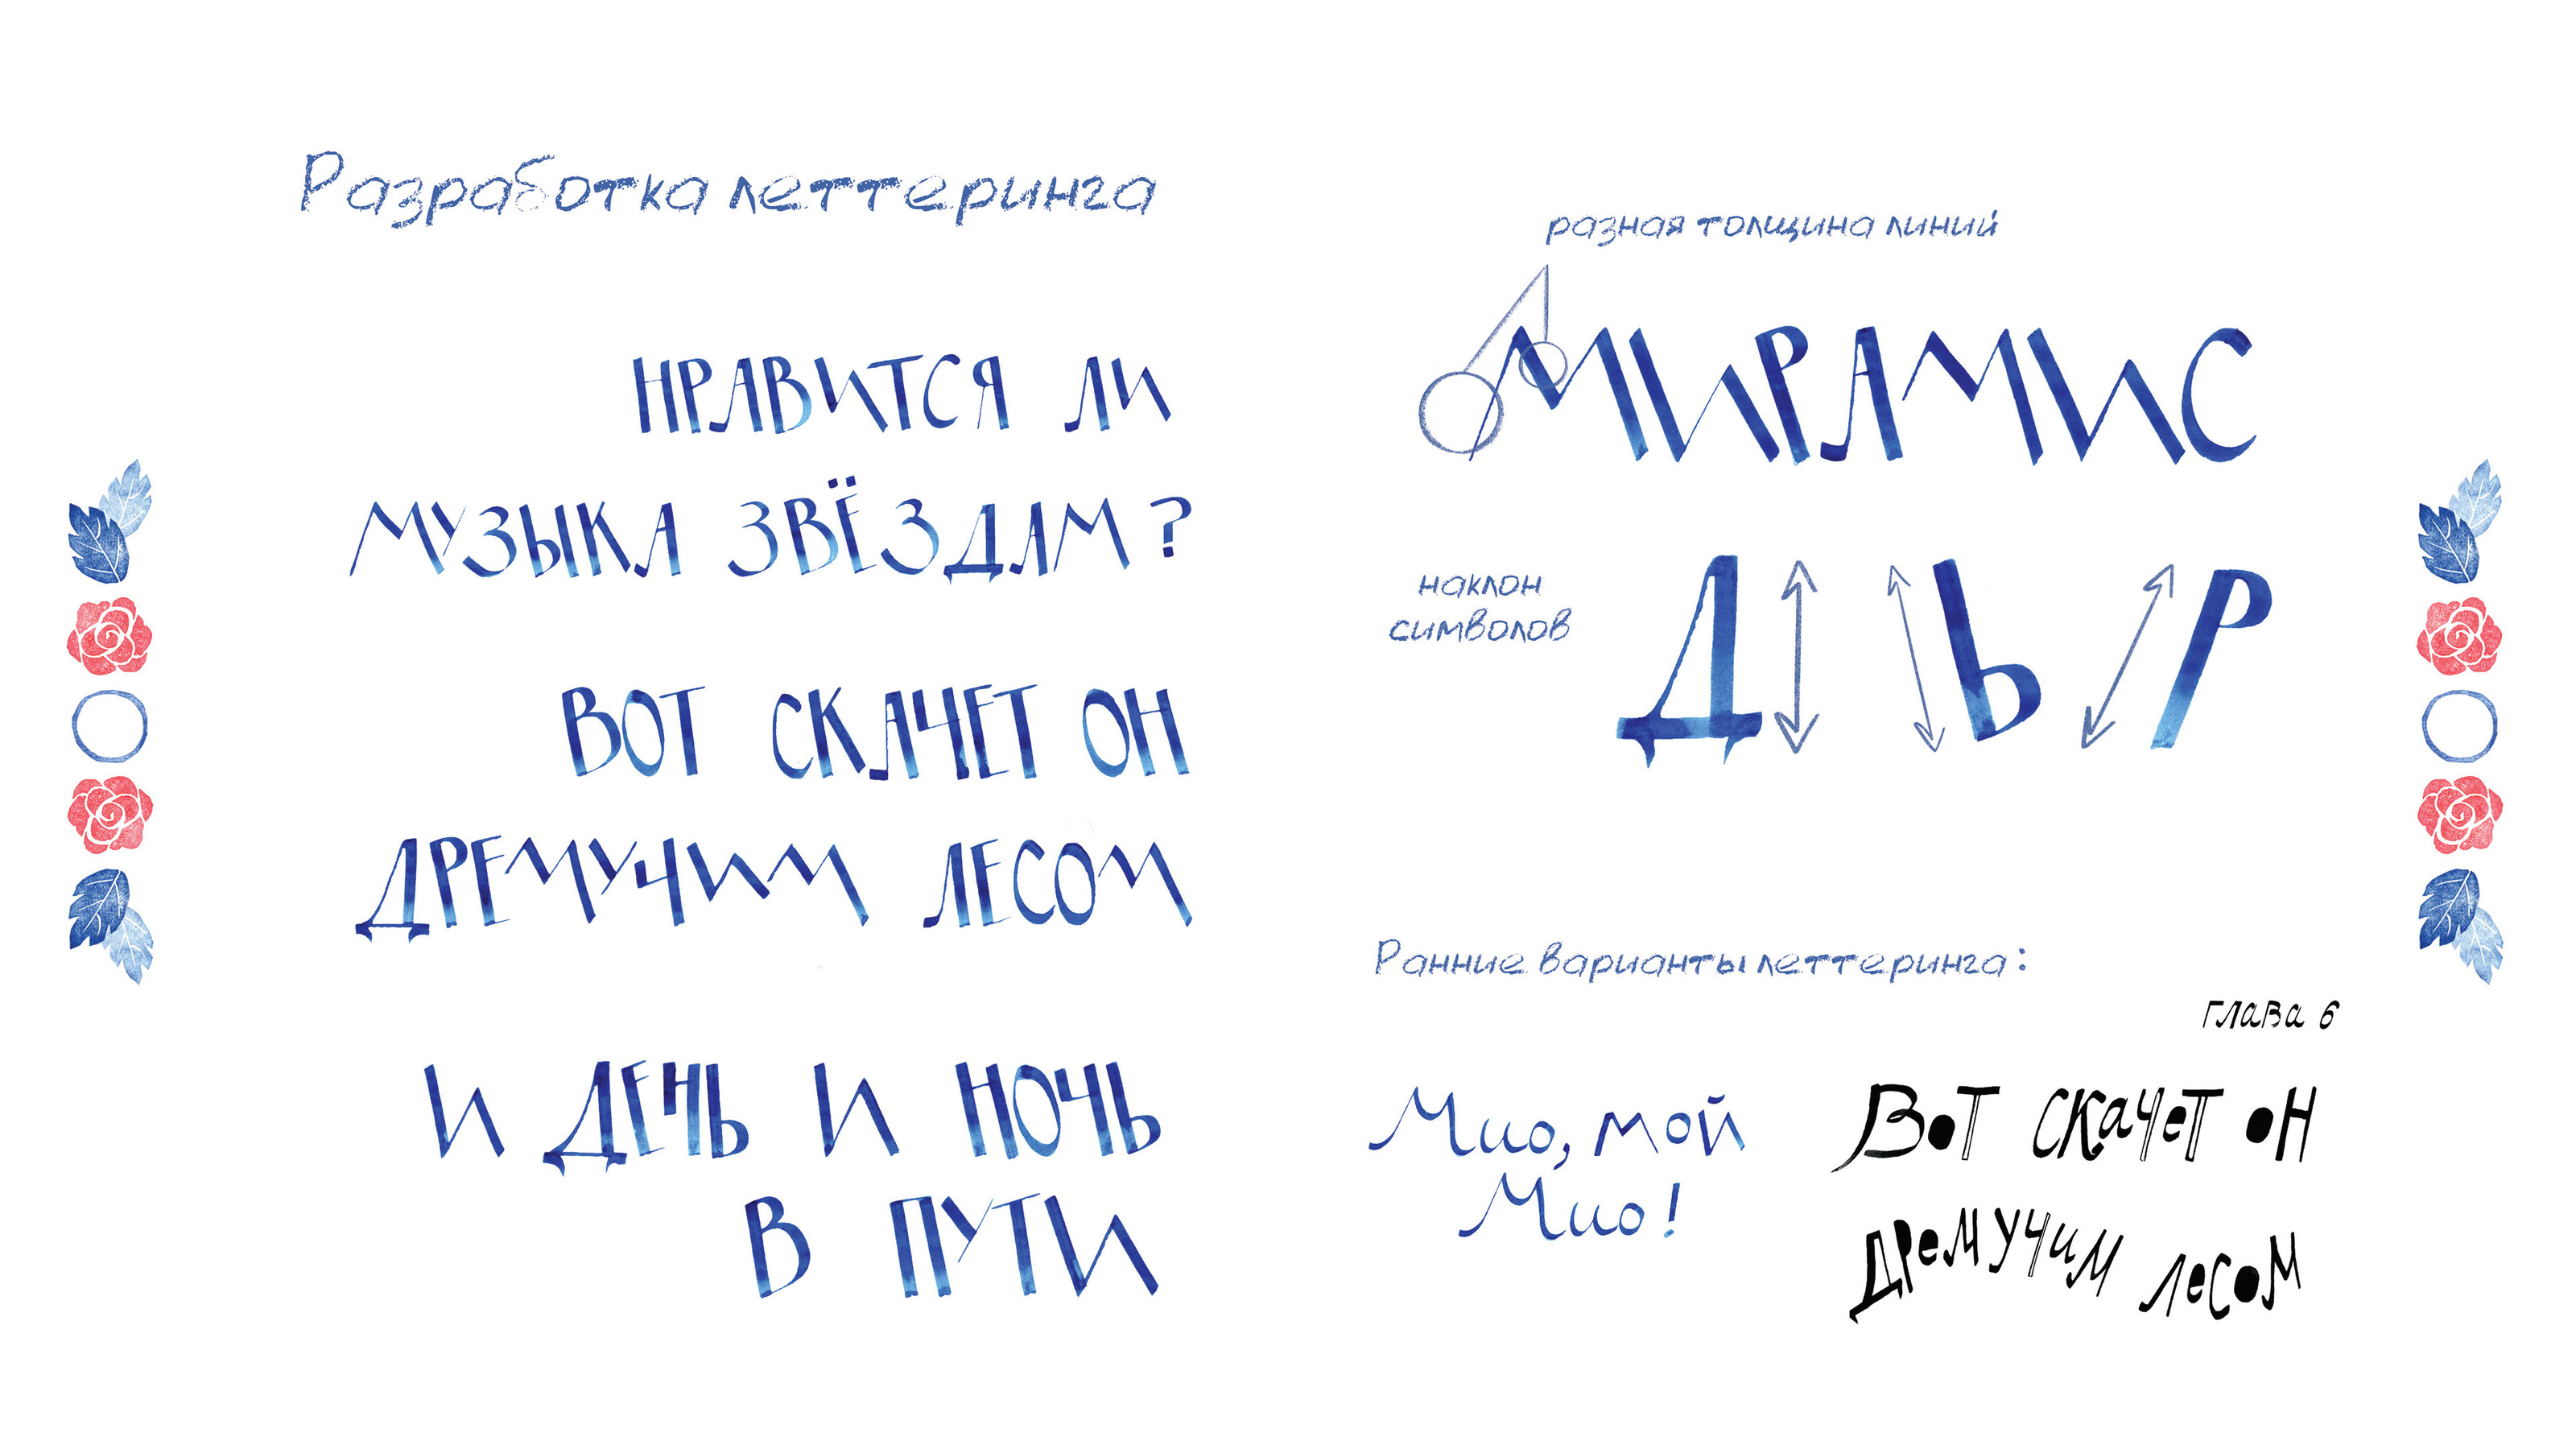 Разработка леттеринга
НРАВИТСЯ ЛИ
МУЗЫКА ЗВЁЗДАМ?
ВОТ СКАЧЕТ ОН
ДРЕМУЧИМ ЛЕСОМ
И ДЕНЬ И НОЧЬ
В ПУТИ
разная толщина линий
МИРАМИС
наклон
символов
Д Ь Р
Ранние варианты леттеринга:
глава 6
Мио, мой
Мио!
Вот скачет он
дремучим лесом